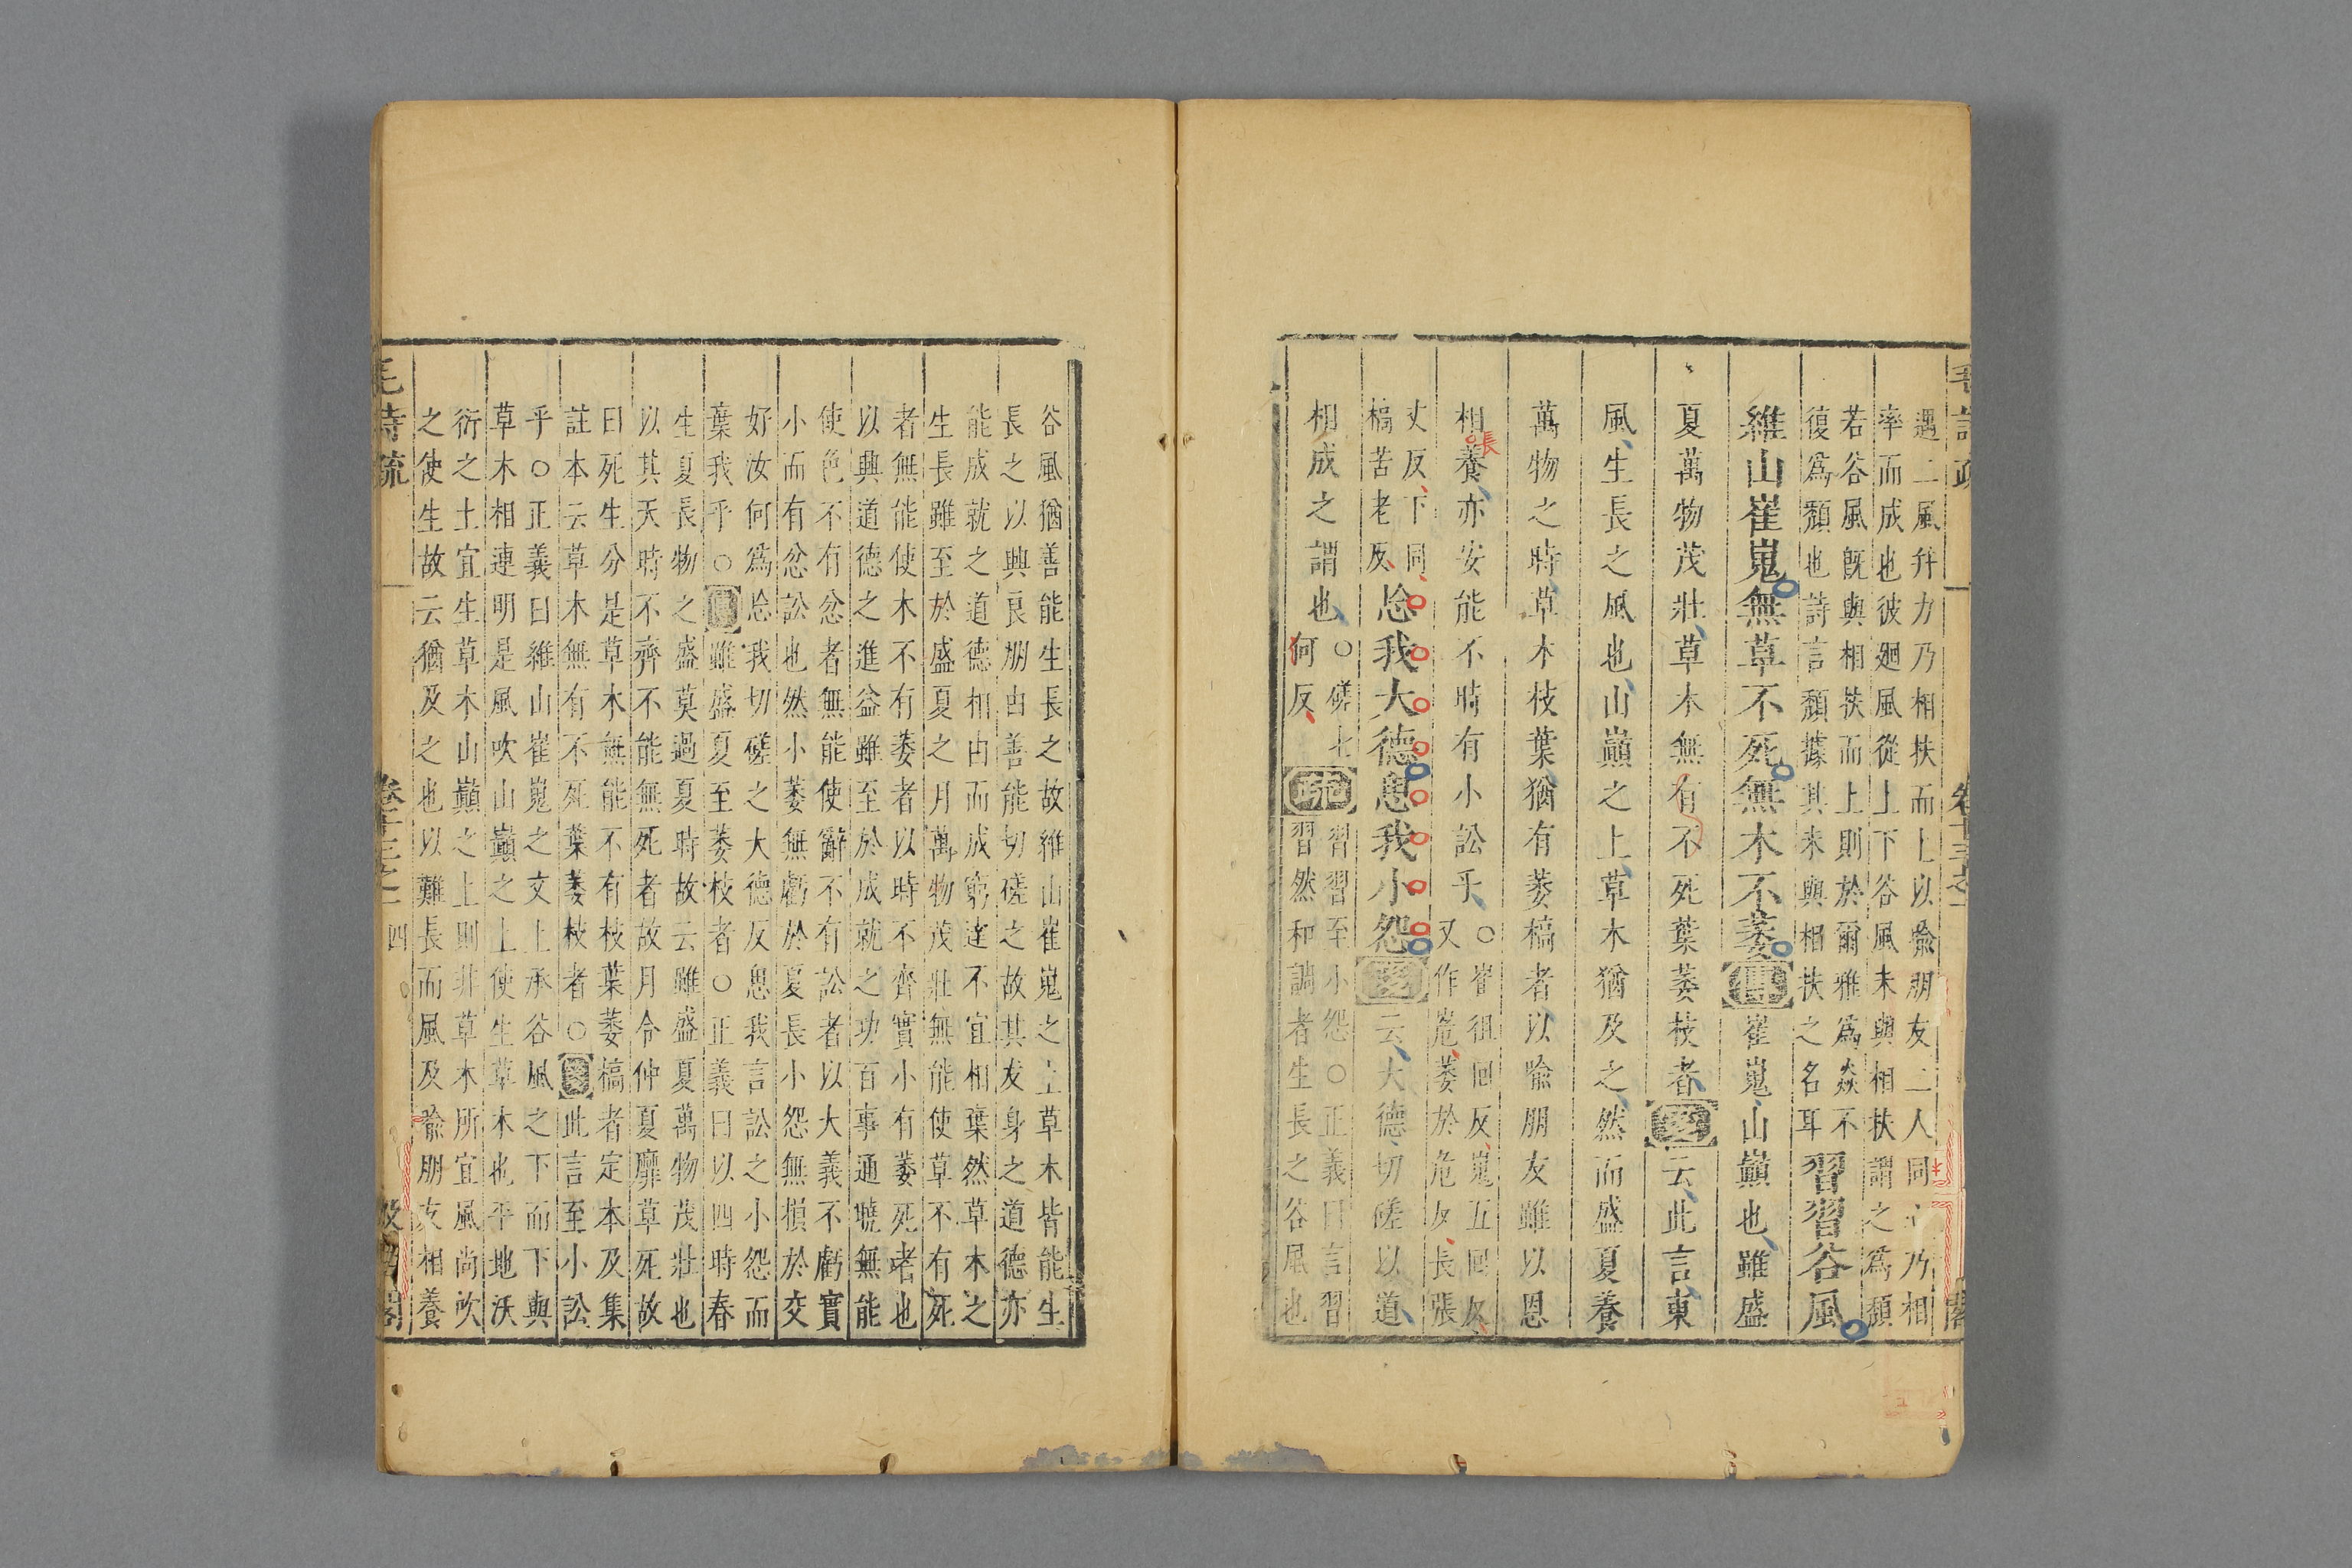 遇二風并力乃相扶而上以喻朋友二人同心乃相
率而成也彼廻風從上下谷風未與相扶謂之爲頹
若谷風既與相扶而上則於爾雅爲焱不
復爲頹也詩言頹據其未與相扶之名耳習習谷風
維山崔嵬無草不死無木不萎傳崔嵬山巔也雖盛
夏萬物茂壯草木無有不死葉萎枝者箋云此言東
風生長之風也山巔之上草木猶及之然而盛夏養
萬物之時草木枝葉猶有萎槁者以喻朋友雖以恩
相養亦安能不時有小訟乎○崔徂回反嵬五回反
又作嵬萎於危反長張
張
丈反下同
槁苦老反忘我大德思我小怨箋云大德切磋以道
相成之謂也○磋七
何反疏習習至小怨○正義曰言習
習然和調者生長之谷風也
毛詩疏
卷十三之一
閣
谷風猶善能生長之故維山崔嵬之上草木皆能生
長之以興良朋由善能切磋之故其友身之道德亦
能成就之道德相由而成窮達不宜相棄然草木之
生長雖至於盛夏之月萬物茂壯無能使草不有死
者無能使木不有萎者以時不齊實小有萎死者也
以興道德之進益雖至於成就之功百事通曉無能
使色不有忿者無能使辭不有訟者以大義不虧實
小而有忿訟也然小萎無虧於夏長小怨無損於交
好汝何爲忘我切磋之大德反思我言訟之小怨而
葉我乎○傳雖盛夏至萎枝者○正義曰以四時春
生夏長物之盛莫過夏時故云雖盛夏萬物茂壯也
以其天時不齊不能無死者故月令仲夏靡草死故
曰死生分是草木無能不有枝葉萎槁者定本及集
註本云草木無有不死葉萎枝者○箋此言至小訟
乎○正義曰維山崔嵬之文上承谷風之下而下與
草木相連明是風吹山巔之上使生草木也平地沃
衍之土宜生草木山巔之上則非草木所宜風尚吹
之使生故云猶及之也以難長而風及喻朋友相養
毛詩疏
卷十三之一
四
汲古閣